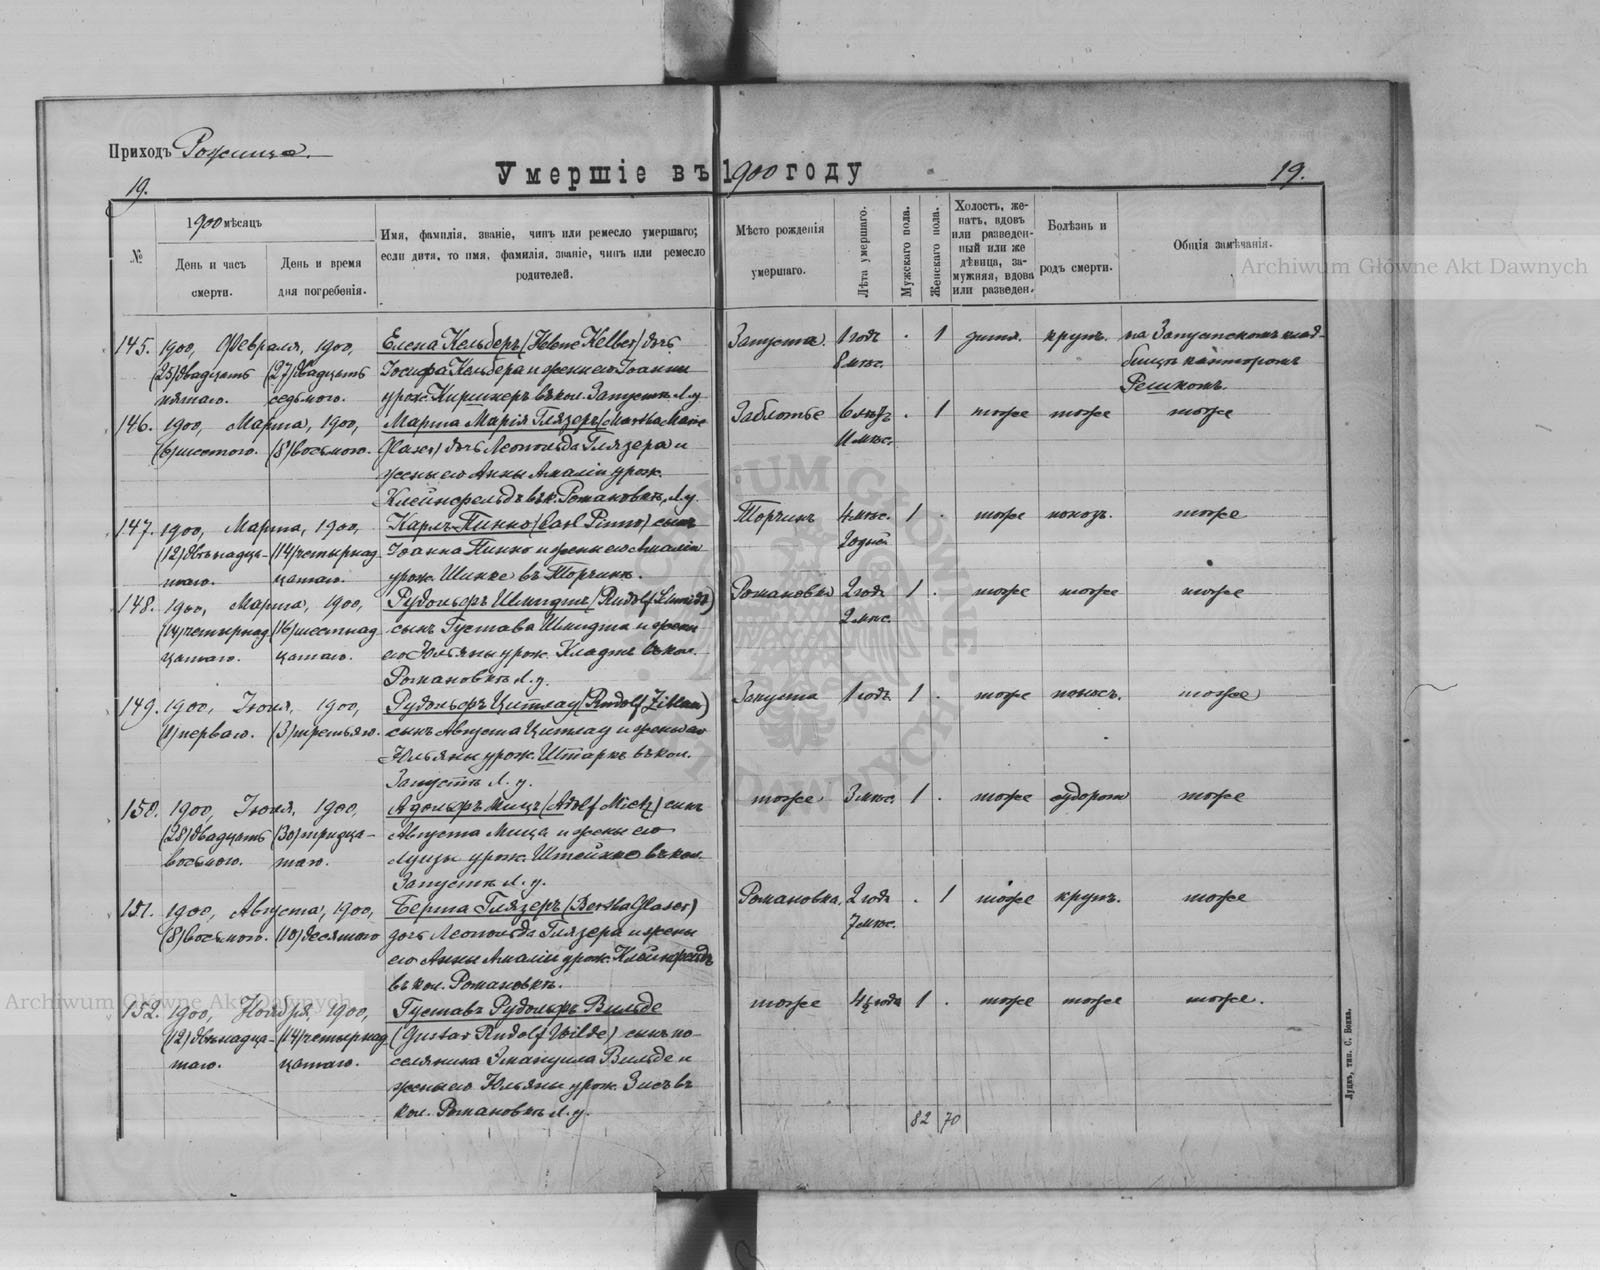 Приходъ Рожище.
Умершіе въ 1900 году
19.
19.
№
1900 мѣсяцъ
День и часъ
смерти.
День и время
дня погребенія.
Имя, фамилія, званіе, чинъ или ремесло умершаго;
если дитя, то имя, фамилія, званіе, чинъ или ремесло
родителей.
Мѣсто рожденія
умершаго.
Лѣта умершаго.
Мужскаго пола.
Женскаго пола.
Холостъ, же-
натъ, вдовъ
или разведен-
ный или же
дѣвица, за-
мужняя, вдова
или разведен.
Болѣзнь и
родъ смерти.
Общія замѣчанія.
145. 1900, Февраля, 1900,
(25) двадцать (27) двадцать
пятаго. седьмого.
Елена Кельберъ (Helene Kelber) дочь
Іосифа Кельбера и жены его Іоанны
урож. Киршнеръ въ кол. Запустъ Л. у.
Запуста. 1 годъ . 1 дитя. крупъ. на Запустскомъ клад-
8 мѣс. бищѣ канторомъ
146. 1900, Марта, 1900,
(6) шестого. (8) восьмого.
Марта Марія Глязеръ (Martha Marie
Glaser) дочь Леопольда Глязера и
жены его Анны Амаліи урож.
Клейнфельдъ въ к. Романовкѣ, Л. у.
Заблотье 6 лѣтъ . 1 тоже тоже тоже
11 мѣс.
147. 1900, Марта, 1900,
(12) двѣнадца- (14) четырнад
таго. цатаго.
Карлъ Пинно (Carl Pinno) сынъ
Іоанна Пинно и жены его Амаліи
урож. Шинке въ Торчинѣ.
Торчинъ 4 мѣс. 1 . тоже тоже
148. 1900, Марта, 1900,
(14) четырнад (16) шестнад
цатаго. цатаго.
Рудольфъ Шмидтъ (Rudolf Schmidt)
сынъ Густава Шмидта и жены
его Юльяны урож. въ кол.
Романовкѣ Л. у.
Романовка 2 года 1 . тоже тоже тоже
2 мѣс.
149. 1900, Іюня, 1900,
(1) перваго. (3) третьяго.
Рудольфъ Цитлау (Rudolf Zittlau)
сынъ Августа Цитлау и жены его
Юльяны урож. Штаркъ въ кол.
Запустѣ Л. у.
Запуста 1 годъ 1 . тоже поносъ. тоже
150. 1900, Іюня, 1900,
(28) двадцать (30) тридца-
восьмого. таго.
Адольфъ Мицъ (Adolf Mietz) сынъ
Августа Мица и жены его
Луизы урож. Штейнке въ кол.
Запустѣ Л. у.
тоже 3 мѣс. 1 . тоже судороги тоже
151. 1900, Августа, 1900,
(8) восьмого. (10) десятого
Берта Глязеръ (Bertha Glaser)
дочь Леопольда Глязера и жены
его Анны Амаліи урож. Клейнфельдъ
въ кол. Романовкѣ.
Романовка, 2 года . 1 тоже крупъ. тоже
7 мѣс.
152. 1900, Ноября, 1900,
(12) двѣнадца- (14) четырнад
таго. цатаго.
Густавъ Рудольфъ Вильде
(Gustav Rudolf Wilde) сынъ по-
селянина Эмануила Вильде и
жены его Юльяны урож. въ
кол. Романовкѣ Л. у.
тоже 1 . тоже тоже тоже.
82 70
Луцкъ, тип. С. Бонка.
Archiwum Główne Akt Dawnych
Archiwum Główne Akt Dawnych